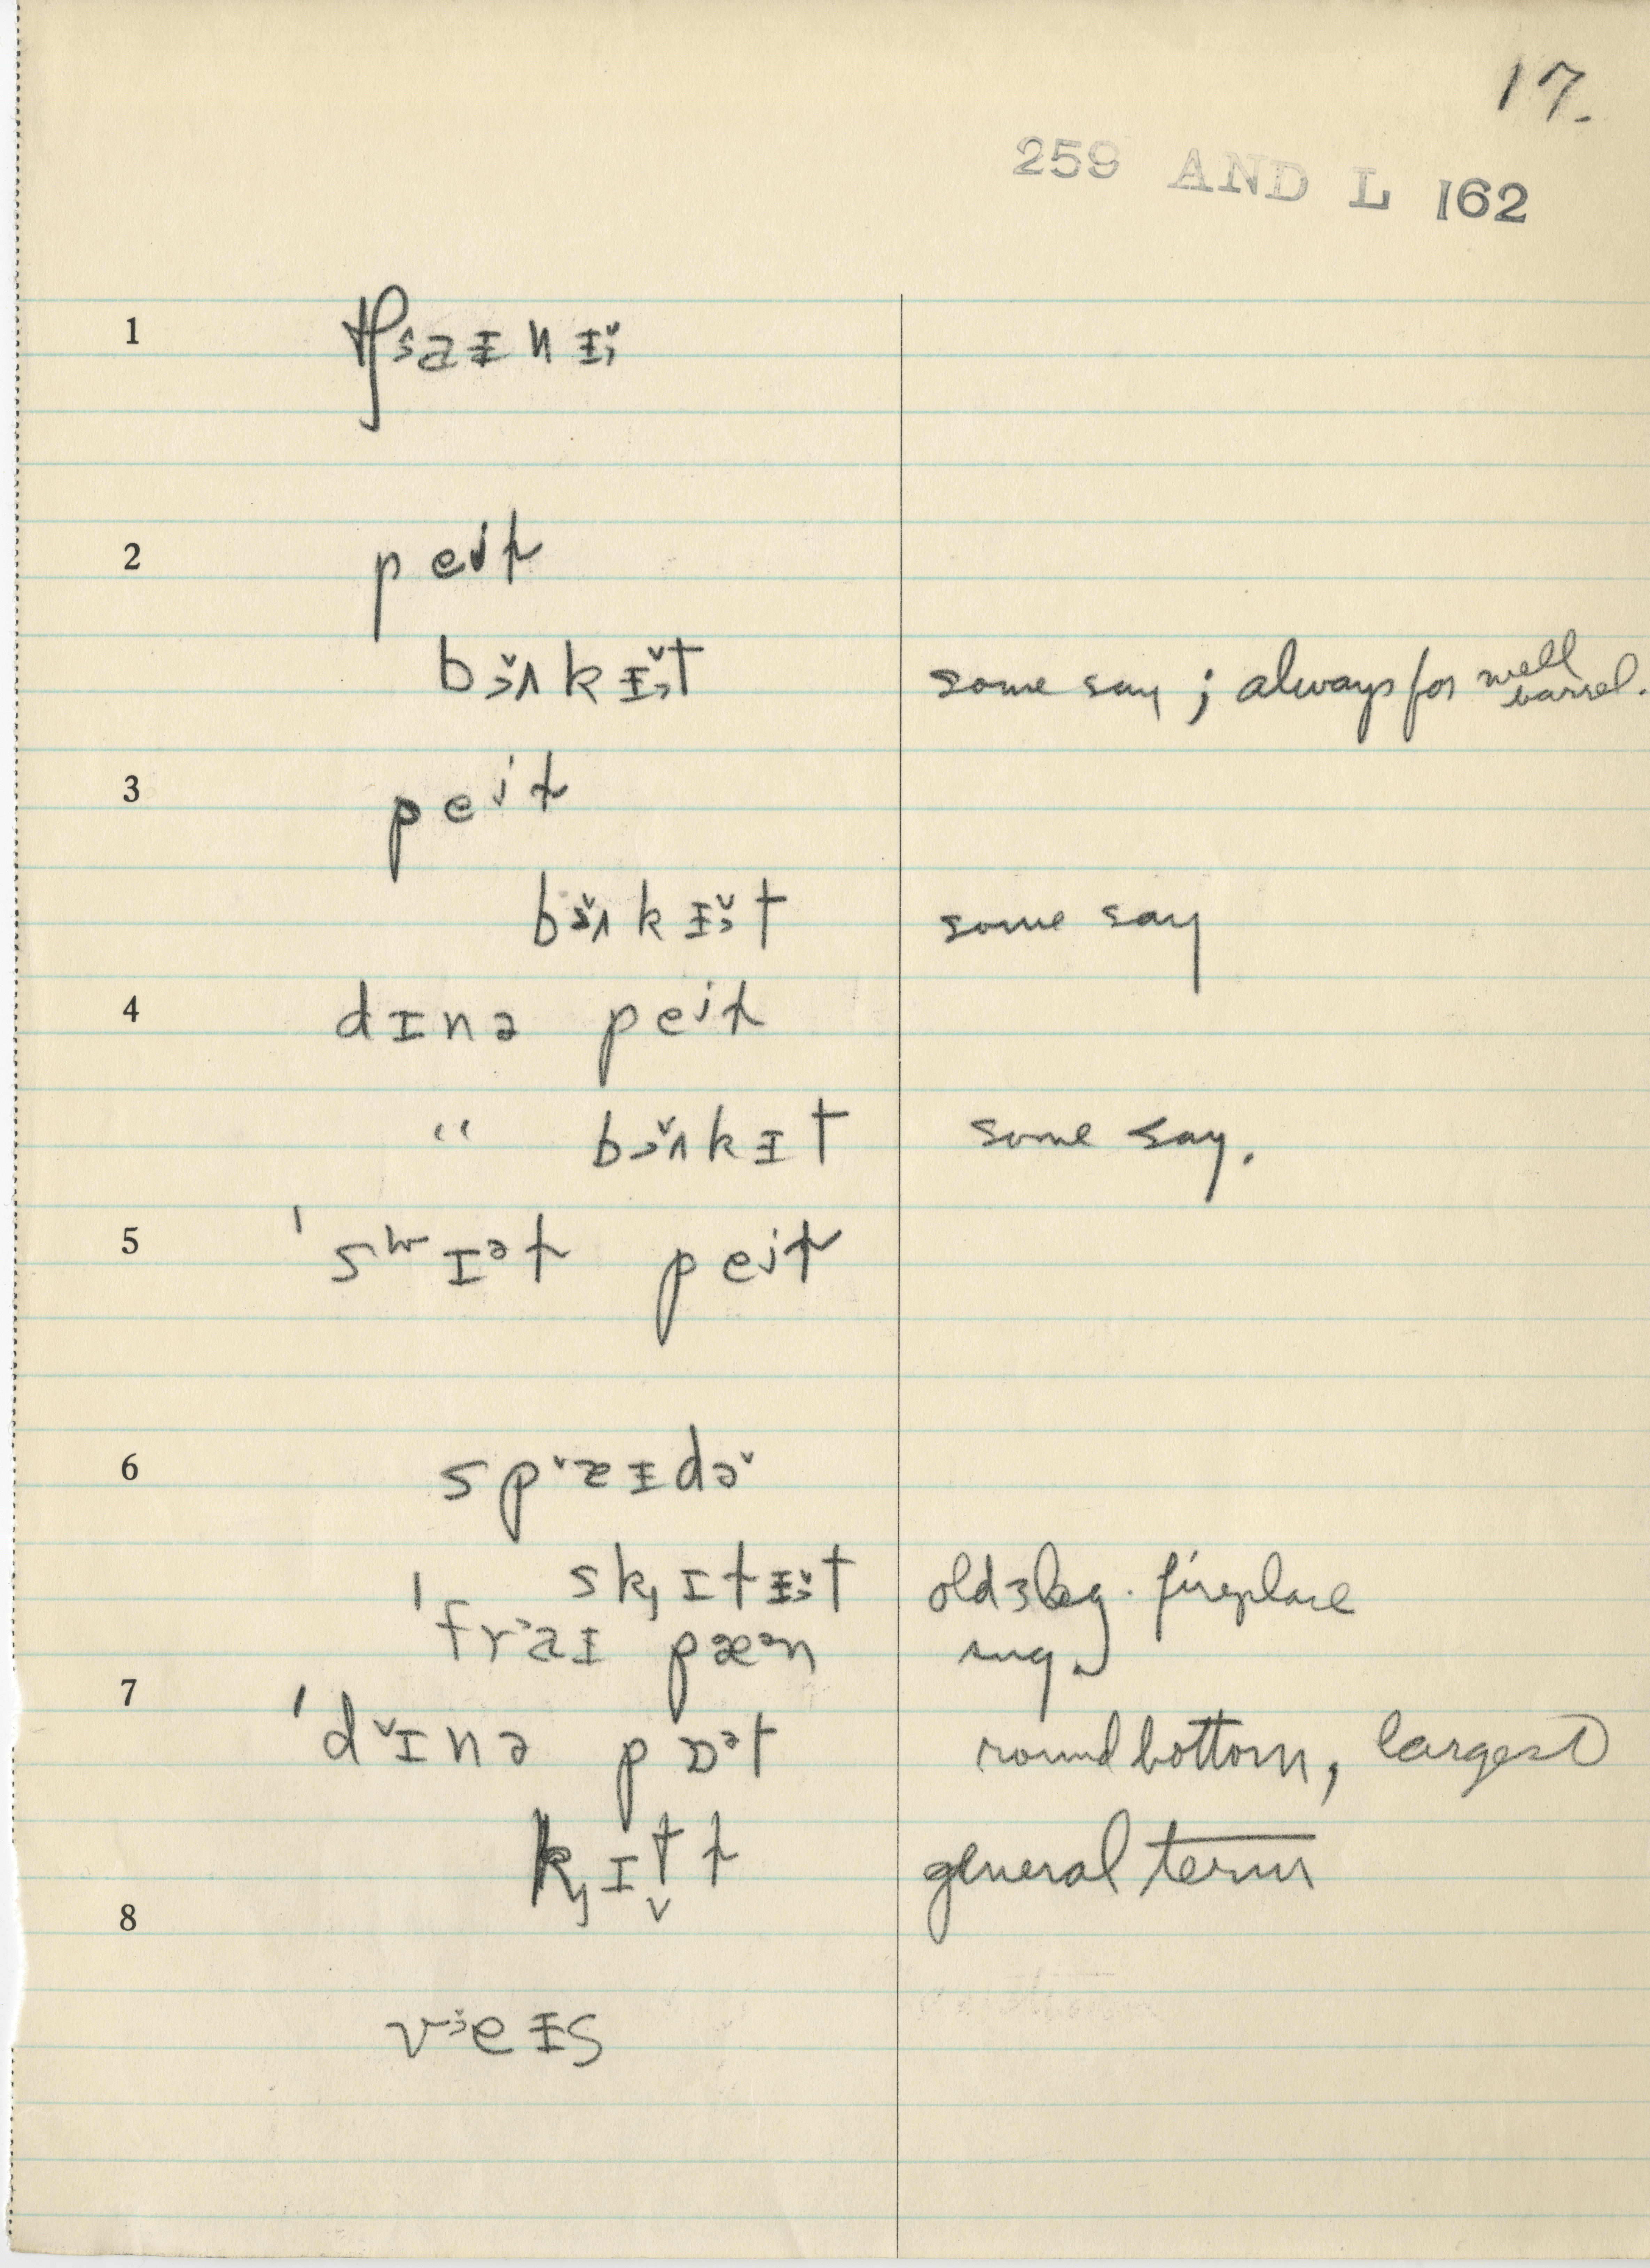 17.
259 AND L 162
1 tʃɜaɪnɪ̌
2 peɪɫ
bɜ̌ʌkɪ̌t some say ; always for well barrel.
3 peɪɫ
bɜ̌ʌkɪ̌t some say
4 dɪnə peɪɫ
" bɜ̌ʌkɪt some say.
5 'swɪəɫ peɪɫ
6 spˇæɪdəˇ
skɪɫɪ̌t old 3 leg. fireplace
'fraɪ pæən
7 'dˇɪnə pɒət round bottom, largest
kɪtɫ general term
8
veɪs